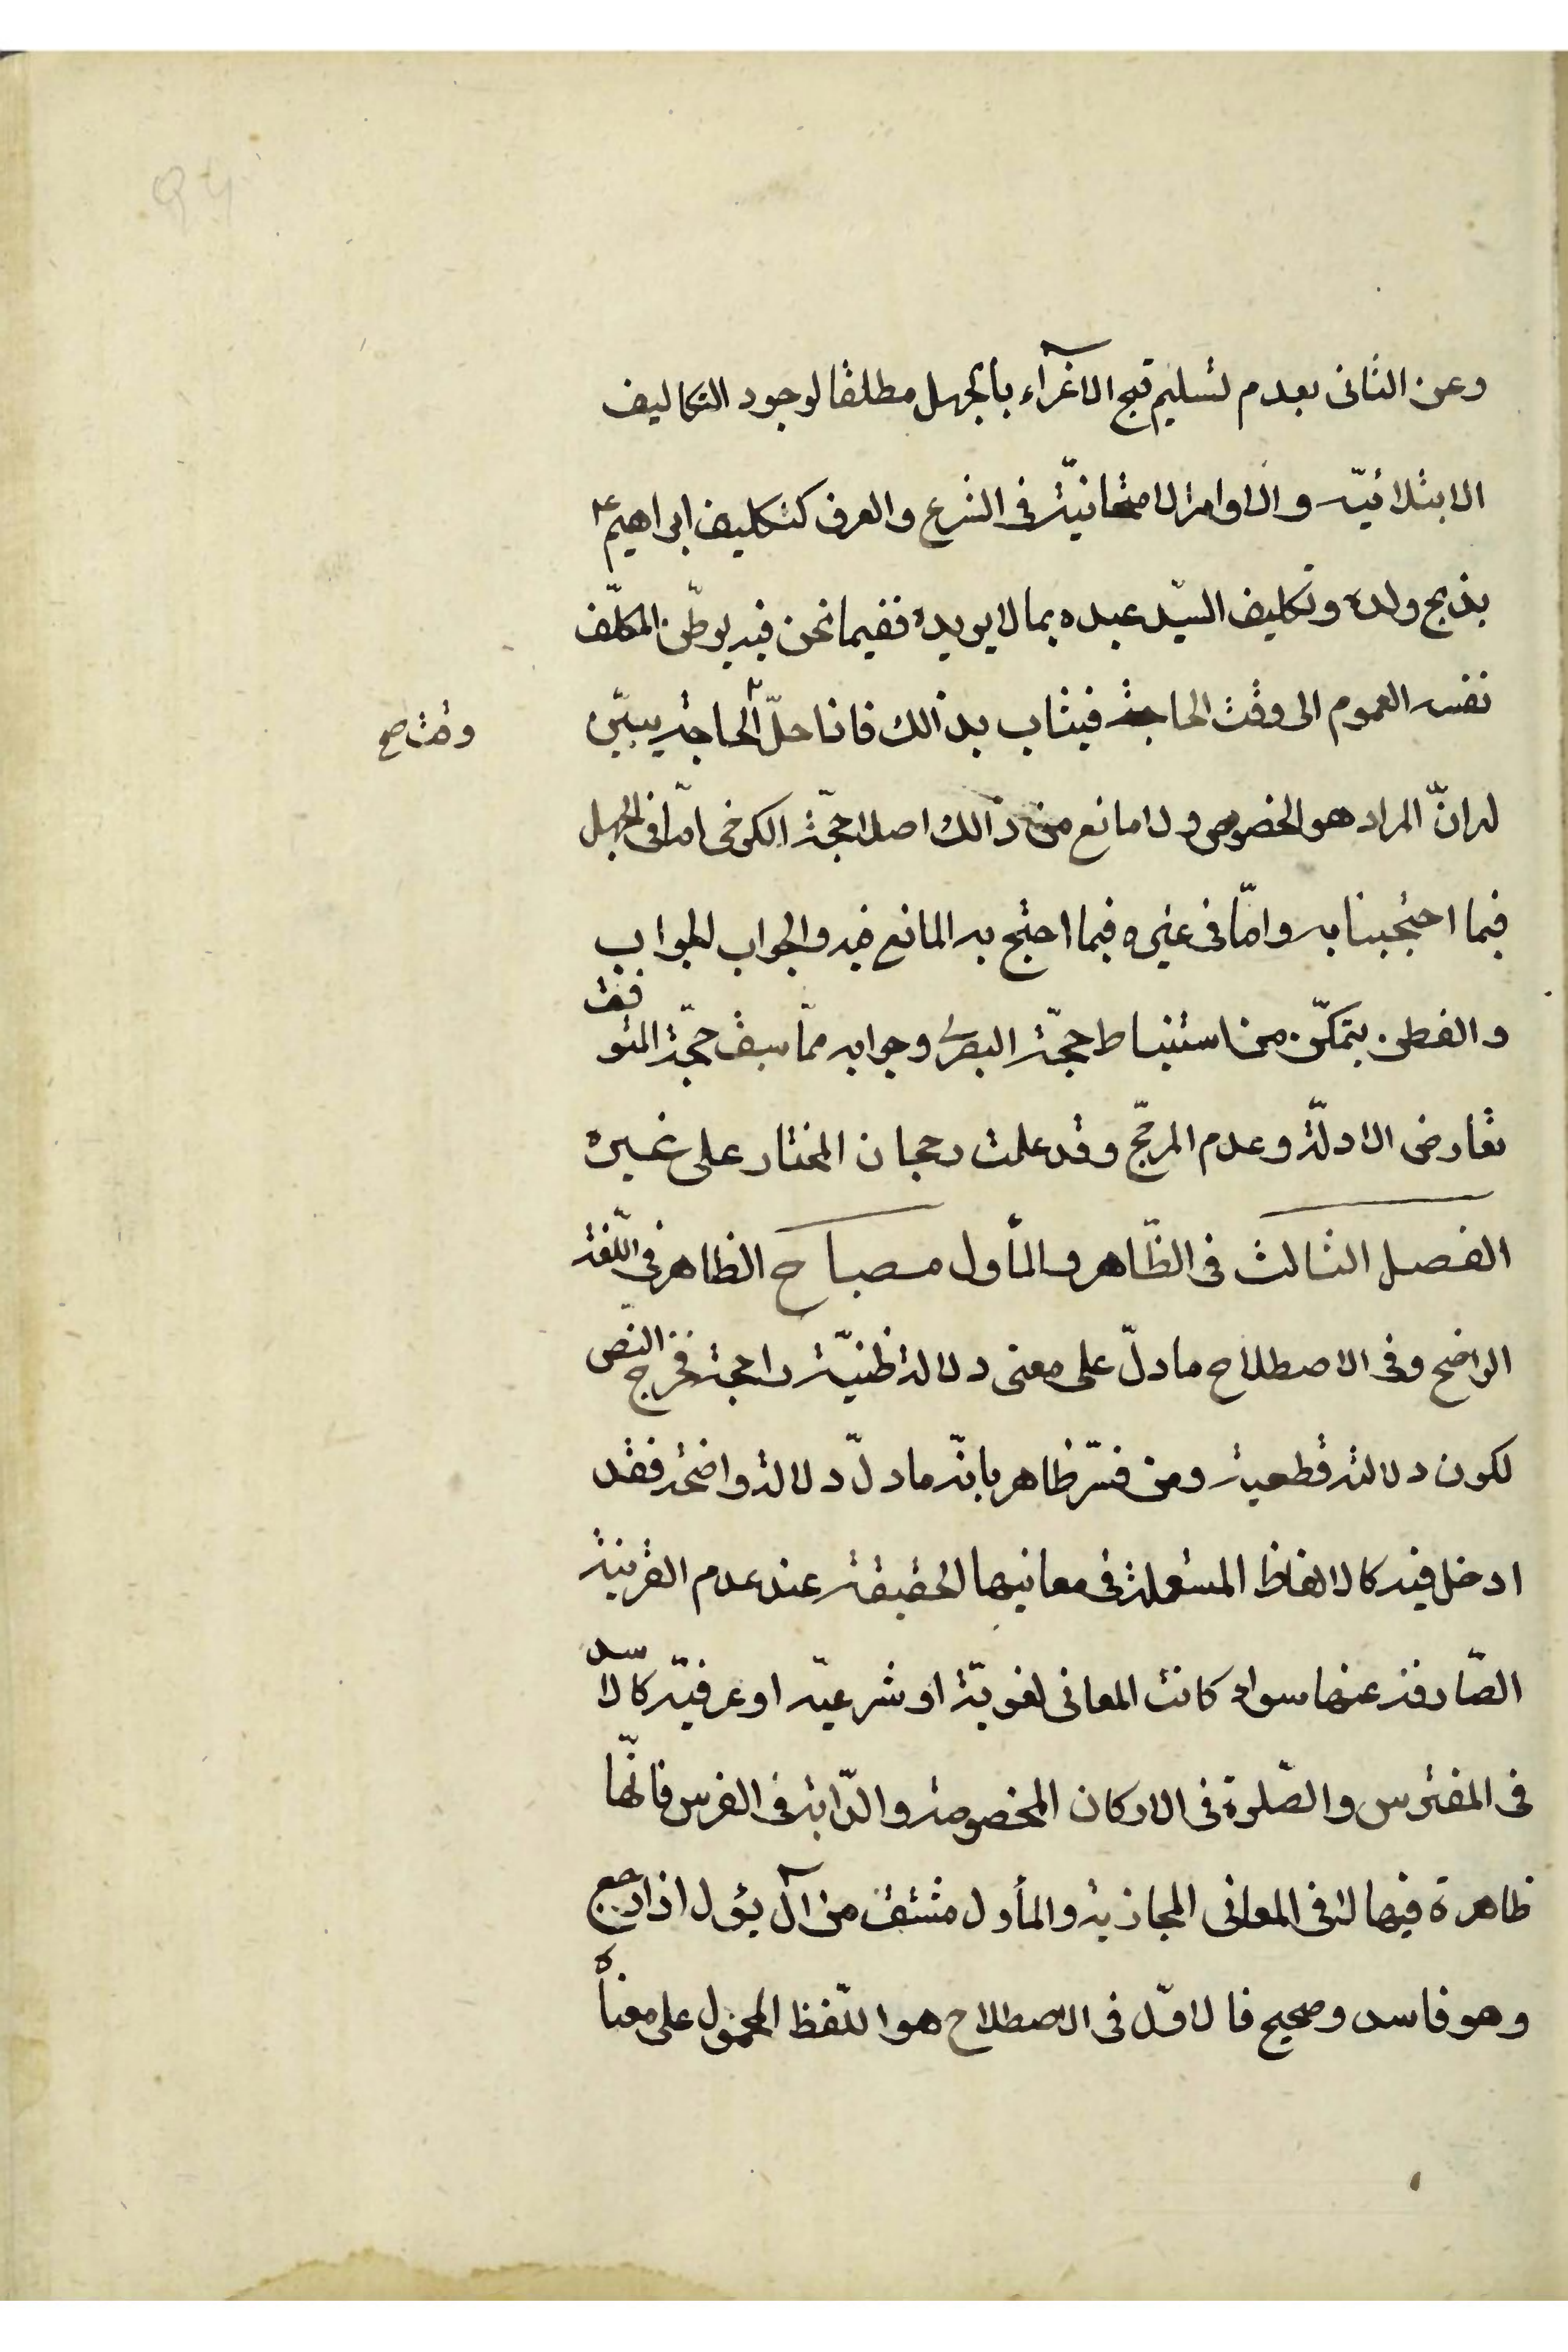 وعن الثانى بعدم تسليم قبح الاغرآء بالجهل مطلقا لوجود التكاليف
الابتلائيّه والاوامر الامتحانيّة فى الشرع والعرف كتكليف ابراهيم ع
بذبح ولده وتكليف السيّد عبده بما لا يريده ففيما نحن فيه يوطّن المكلّف
نفسه العموم الى وقت الحاجة فيثاب بذالك فاذا حلّ الحاجة يبيّن
وقت صح
له انّ المراد هو الخصوص ولا مانع من ذالك اصلا حجّة الكرخى امّا فى المجمل
فيما احتججنا به وامّا فى غيره فيما احتج به المانع فيه والجواب الجواب
والفطن يتمكّن من استنباط حجّة البصرى وجوابه ممّا سبق حجّة المتوقف
تعارض الادلّة وعدم المرجّح وقد علمت رجحان المختار على غيره
الفصل الثالث فى الظّاهر والمأول مصباح الظاهر فى اللّغة
الواضح وفى الاصطلاح ما دلّ على معنى دلالة ظنيّة راجحة فخرج النّص
لكون دلالته قطعية ومن فسّر ظاهر بانّه ما دلّ دلالة واضحة فقد
ادخل فيه كالالفاظ المستعملة فى معانيها الحقيقة عند عدم القرينة
الصّارفة عنها سواء كانت المعانى لغويّة او شرعيّه او عرفيّه كالاسد
فى المفترس والصّلوة فى الاركان المخصوصة والدّابة فى الفرس فانّها
ظاهرة فيها لا فى المعانى المجازية والمأول مشتق من آل يؤل اذا رجع
وهو فاسد وصحيح فالاوّل فى الاصطلاح هو اللّفظ المحمول على معناه